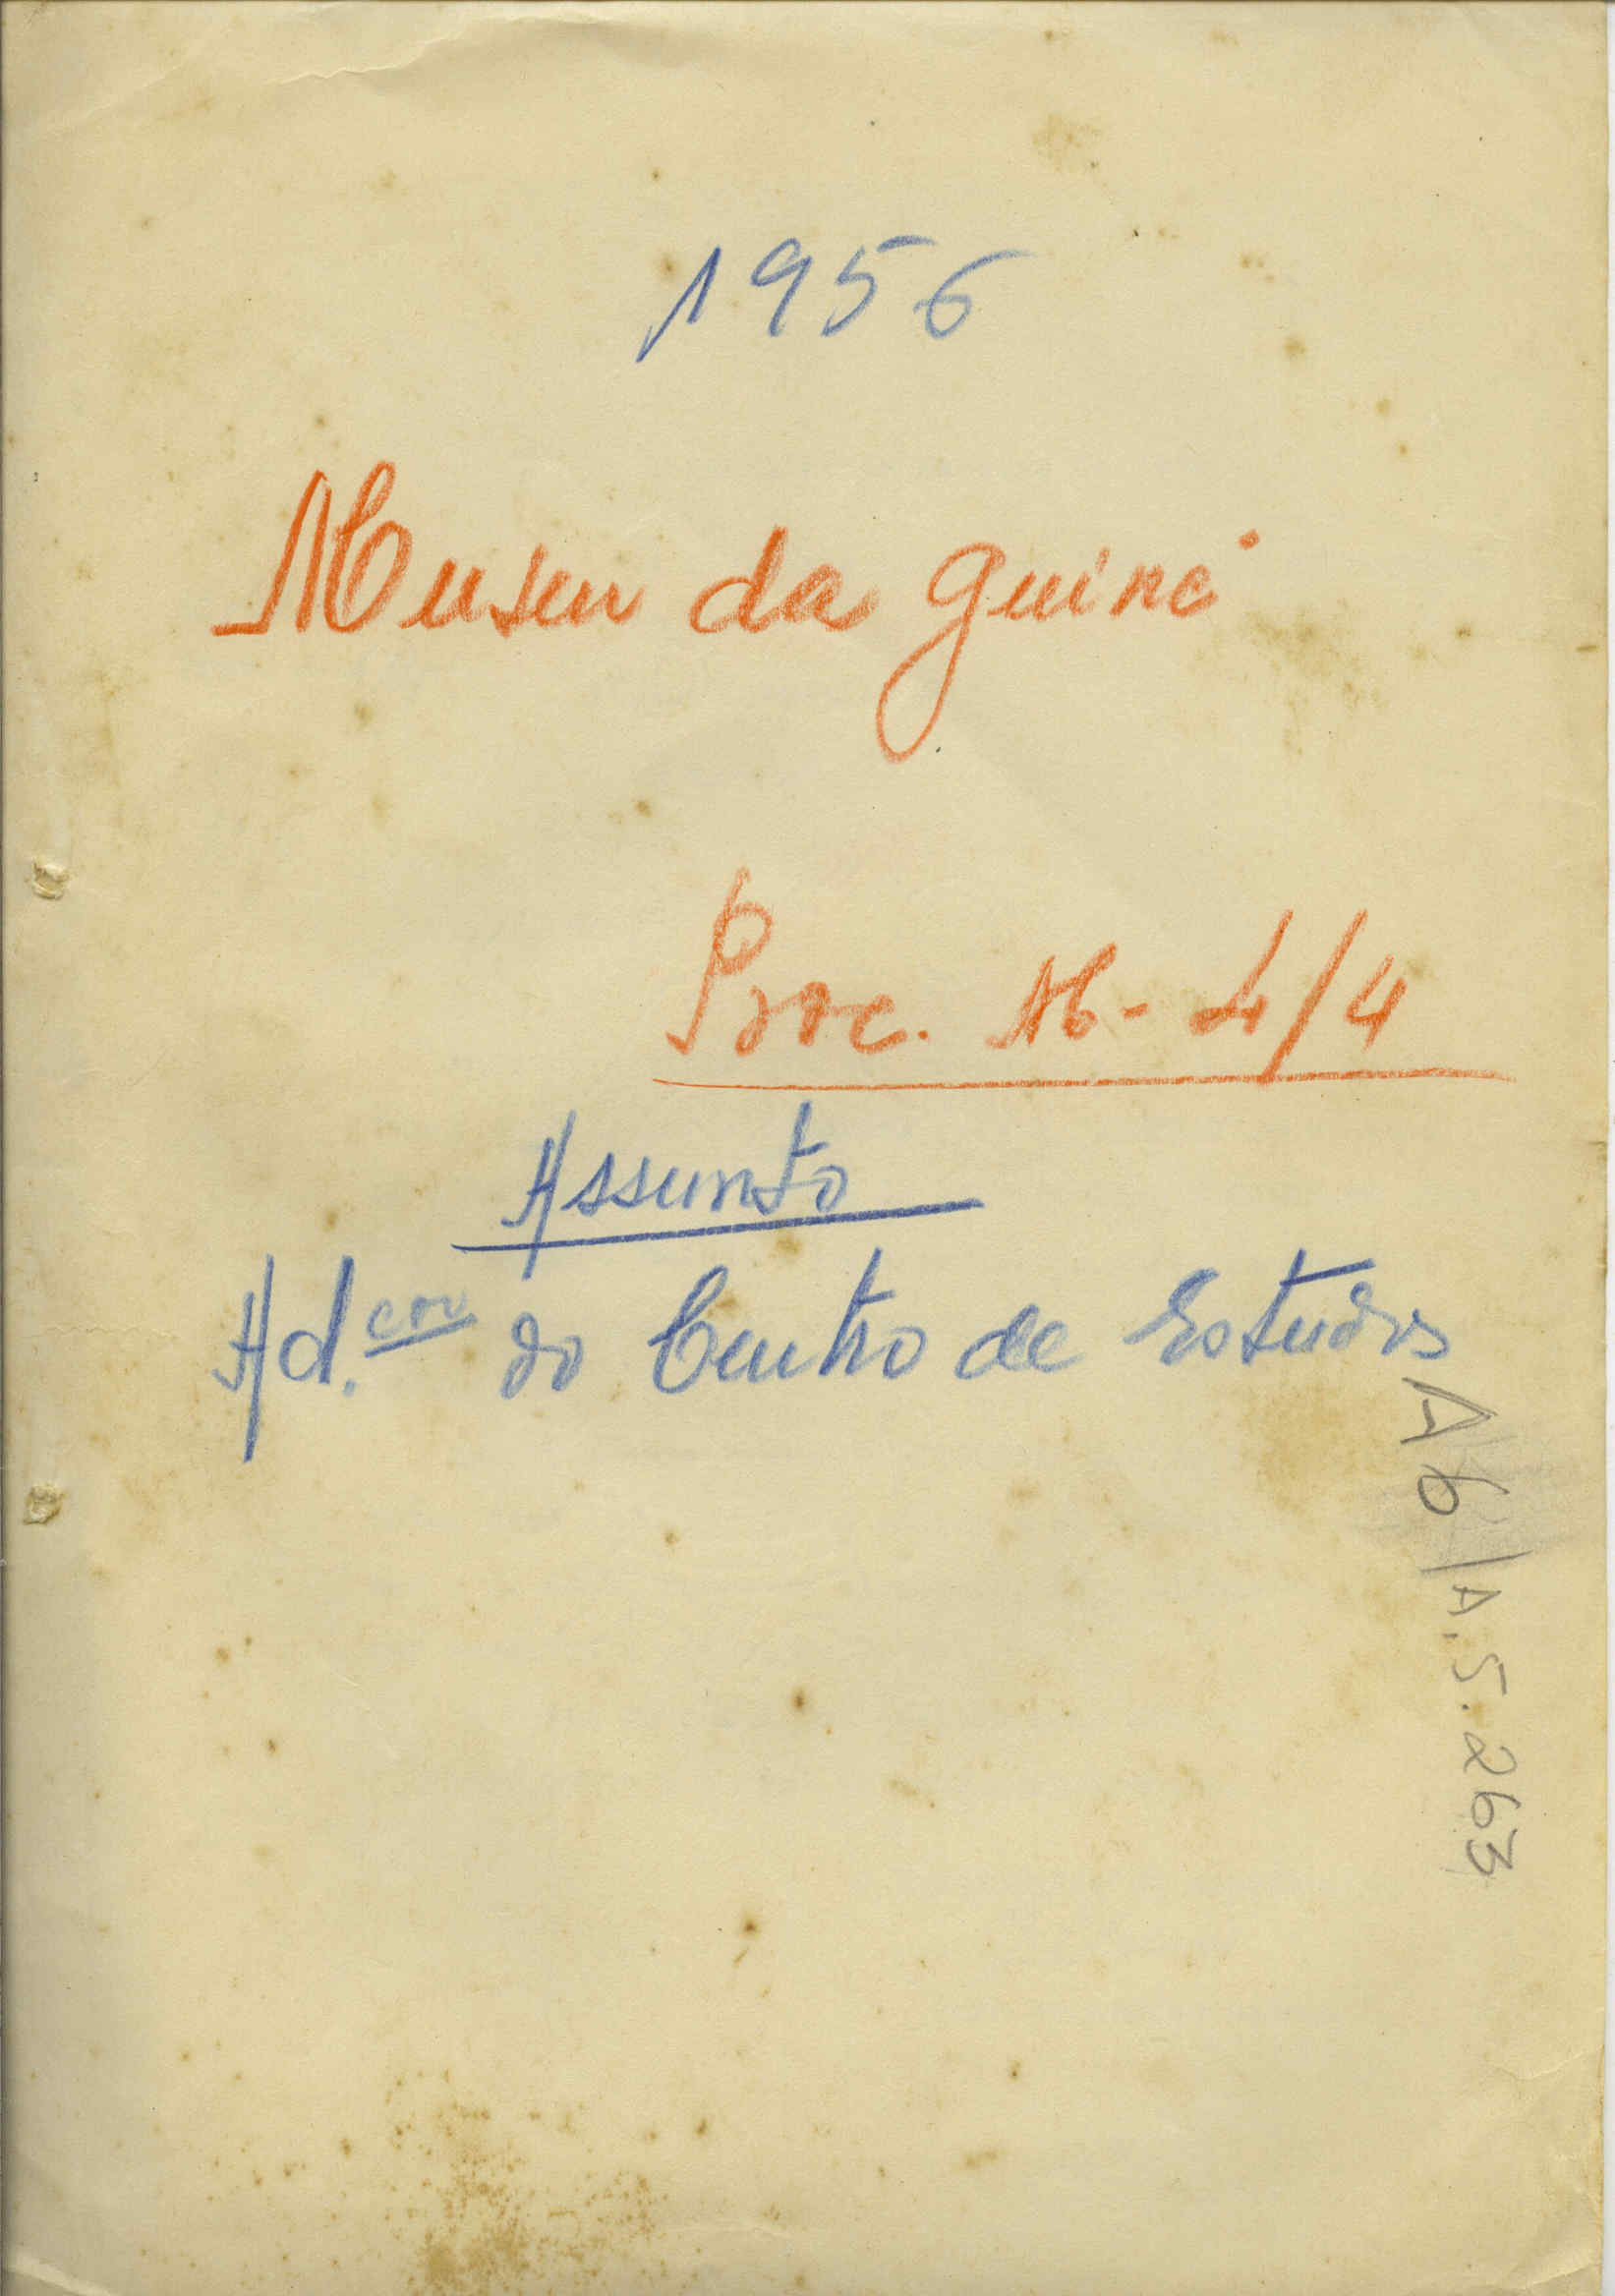 1956
Museu da Guiné
Proc. Ab - 4/4
Assunto
do Centro de Estudos
A6/A.5.263